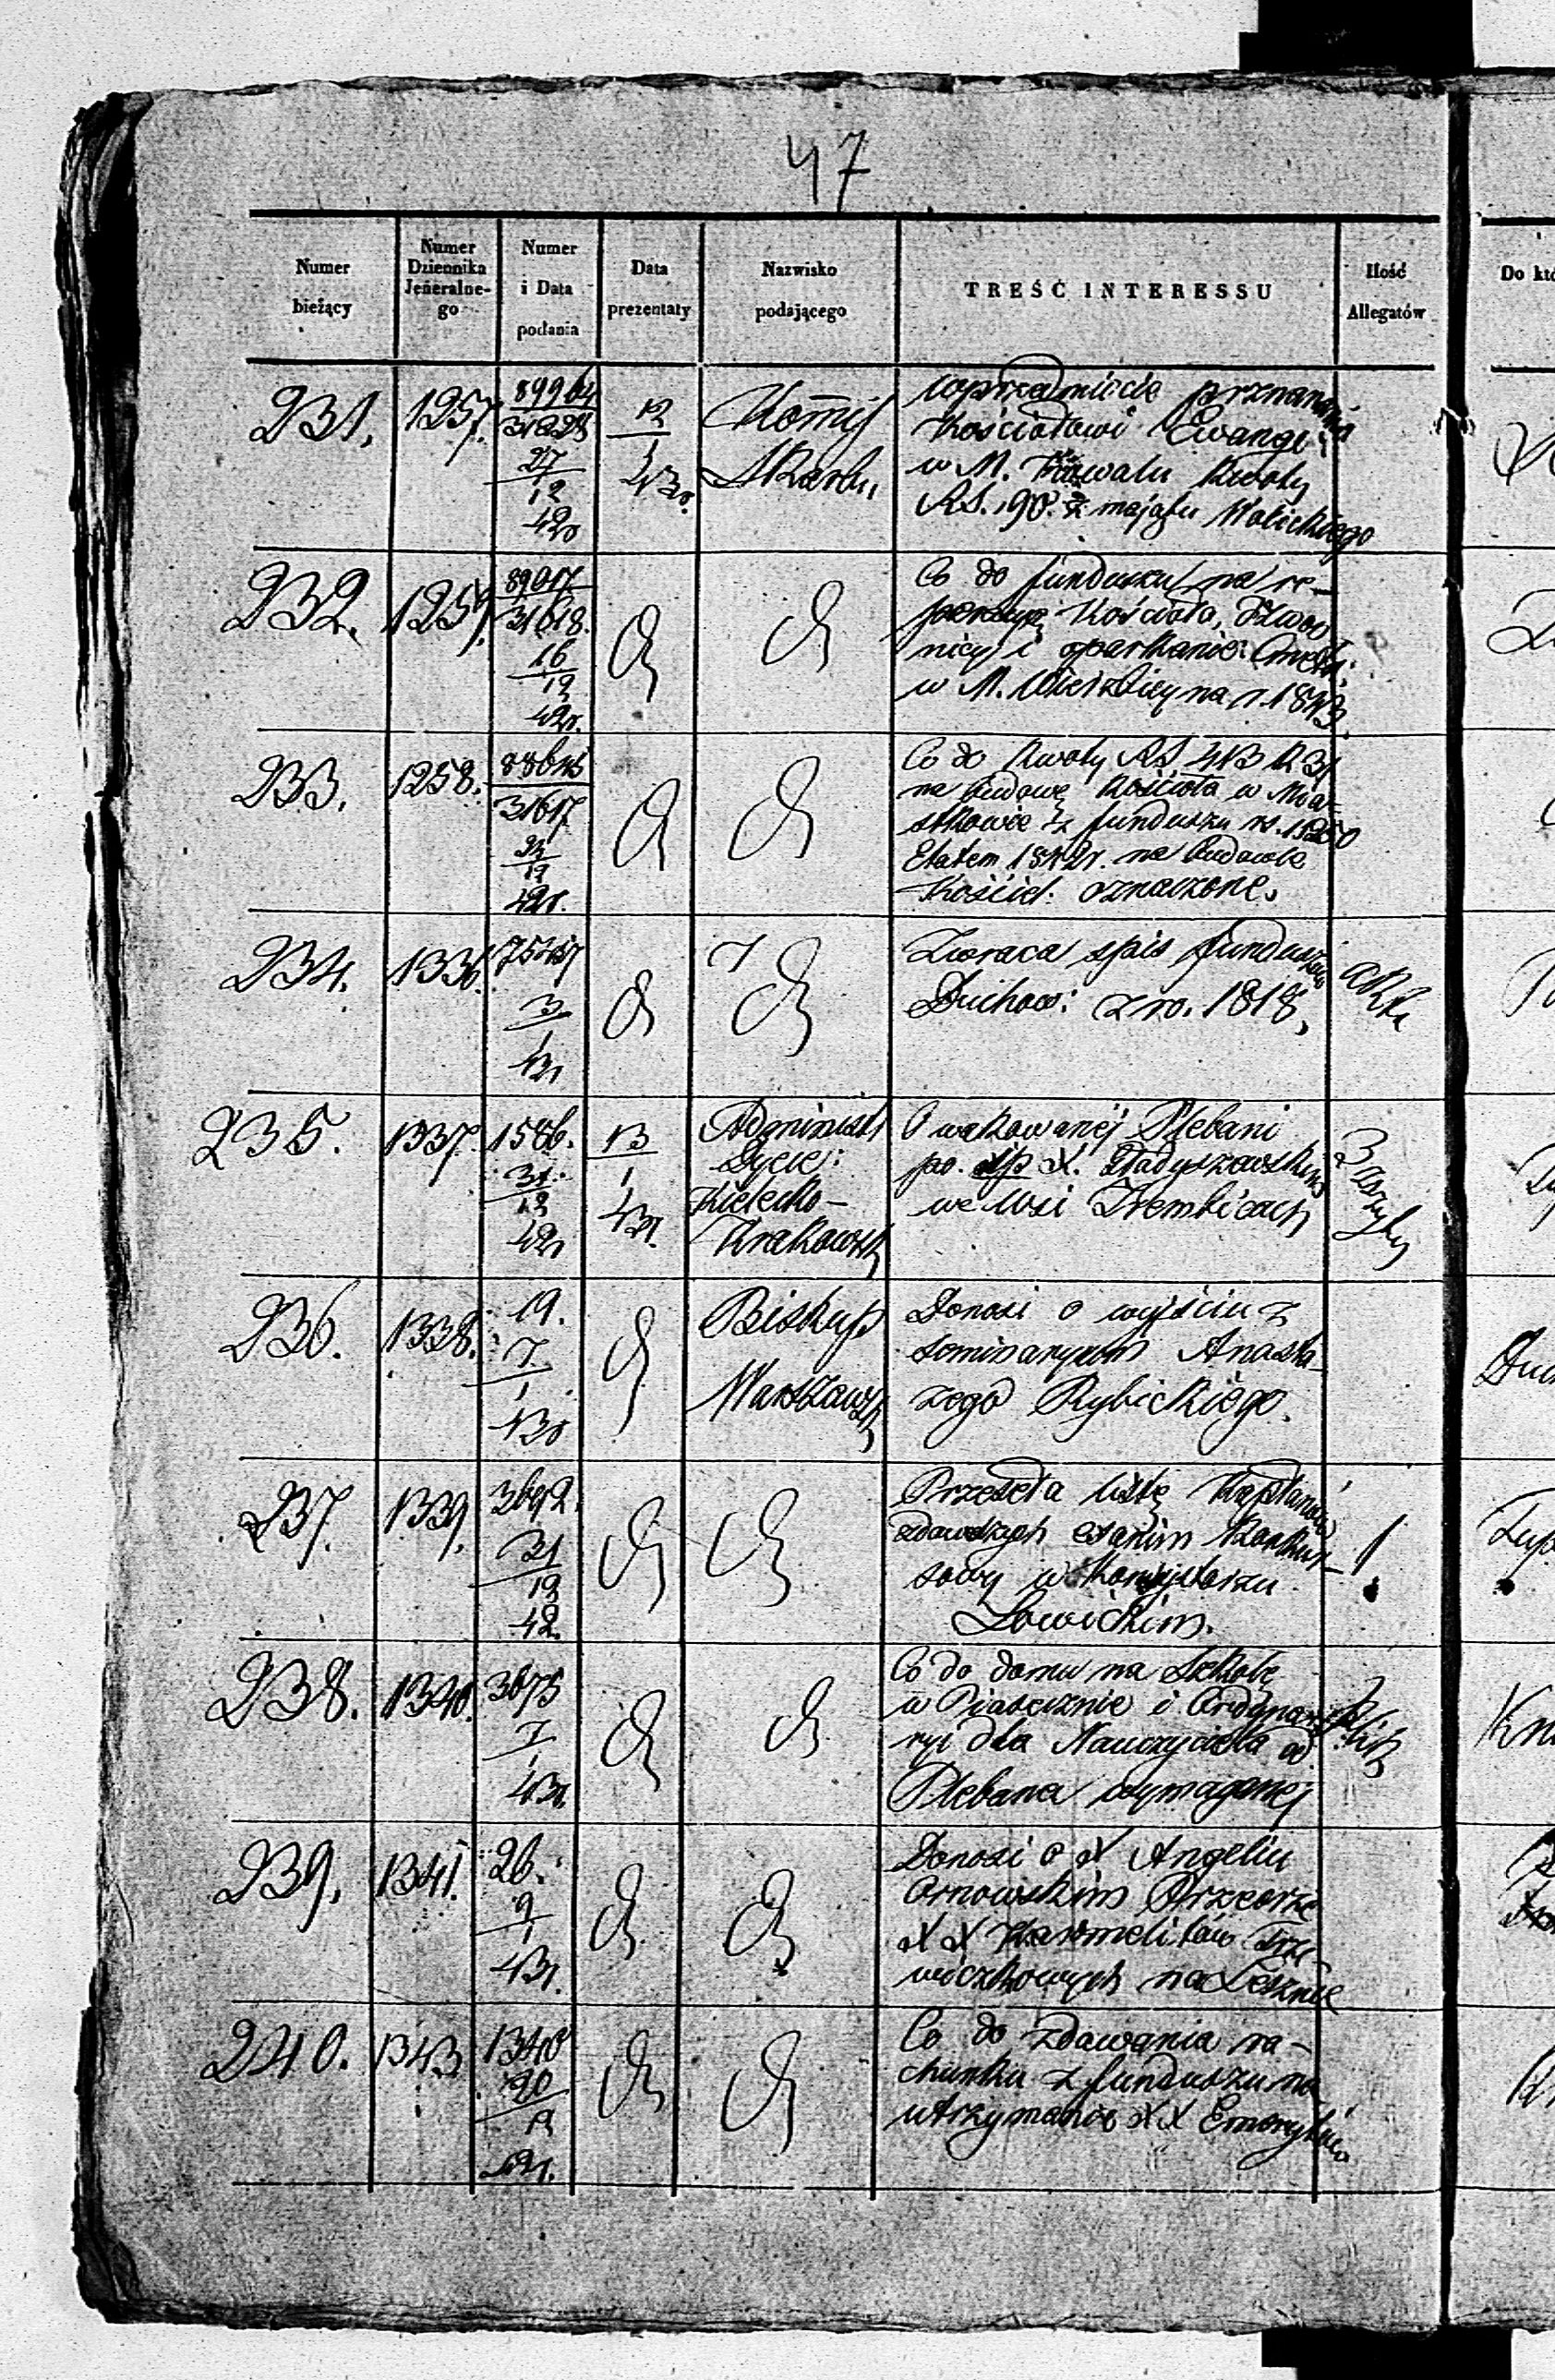 47
Numer bieżący
Numer Dziennika Jeneralne-go
Numer i Data podania
Data prezentaty
Nazwisko podającego
TREŚĆ INTERESSU
Ilość Allegatów
Do któ
231.
1257.
27
12
42r
12
1
43r.
Kommis
Skarbu,
w przedmiocie przyznania
Kościołowi Ewange:
w M. Kowalu Kwoty
RS. 190. z mająt­ku Wolickiego
232.
125
89017
31618.
16
12
42r.
d
d
Co do funduszu na re-
peracyę Kościoła, Dzwon
nicy i oparkanie Cmęt:
w M. Wierzbicy na r. 1843.
233.
1258.
31617
12
42r.
d
d
Co do Kwoty RS 413 K 31
na budowę Kościoła w Mia-
stkowie z funduszu rs. 15250
Etatem 1842r. na budowle
Kościel: oznaczone.
234.
1336.
3
1
43r
d
T
d
Zwraca spis funduszów
Duchow: z ro. 1818,
akta
235.
1337.
1586.
31
12
42r
13
1
43r.
Administr
Dyec:
Kielecko-
Krakowsk
O wakowanéj Plebani
po. śp X.
we wsi Trembicach
3 zszyty
236.
1338.
19.
7
1
43r
d
Biskup
Warszawsk
Donosi o wyjściu z
seminaryum Anasta-
zego Rybickiego.
Duch
237.
1339.
3692.
31
12
42.
d
d
Przeseła listę Kapłanów
zdawszych examin Konkur-
sowy w Konsystorzu
Łowickim.
1
238.
1340.
3675
7
1
43r.
d
d
Co do domu na Szkołę
w Piasecznie i Ordyna-
ryi dla Nauczyciela od
Plebana wymaganej
plik
239.
1341.
26.
9
1
43r.
d
d
Donosi o X Angelim
Ornowskim Przeorze
XX Karmelitów Trze-
wiczkowych na Lesznie
240.
1343
1340
20
12
42r.
d
d
Co do zdawania ra-
chunku z funduszu na
utrzymanie XX Emerytów